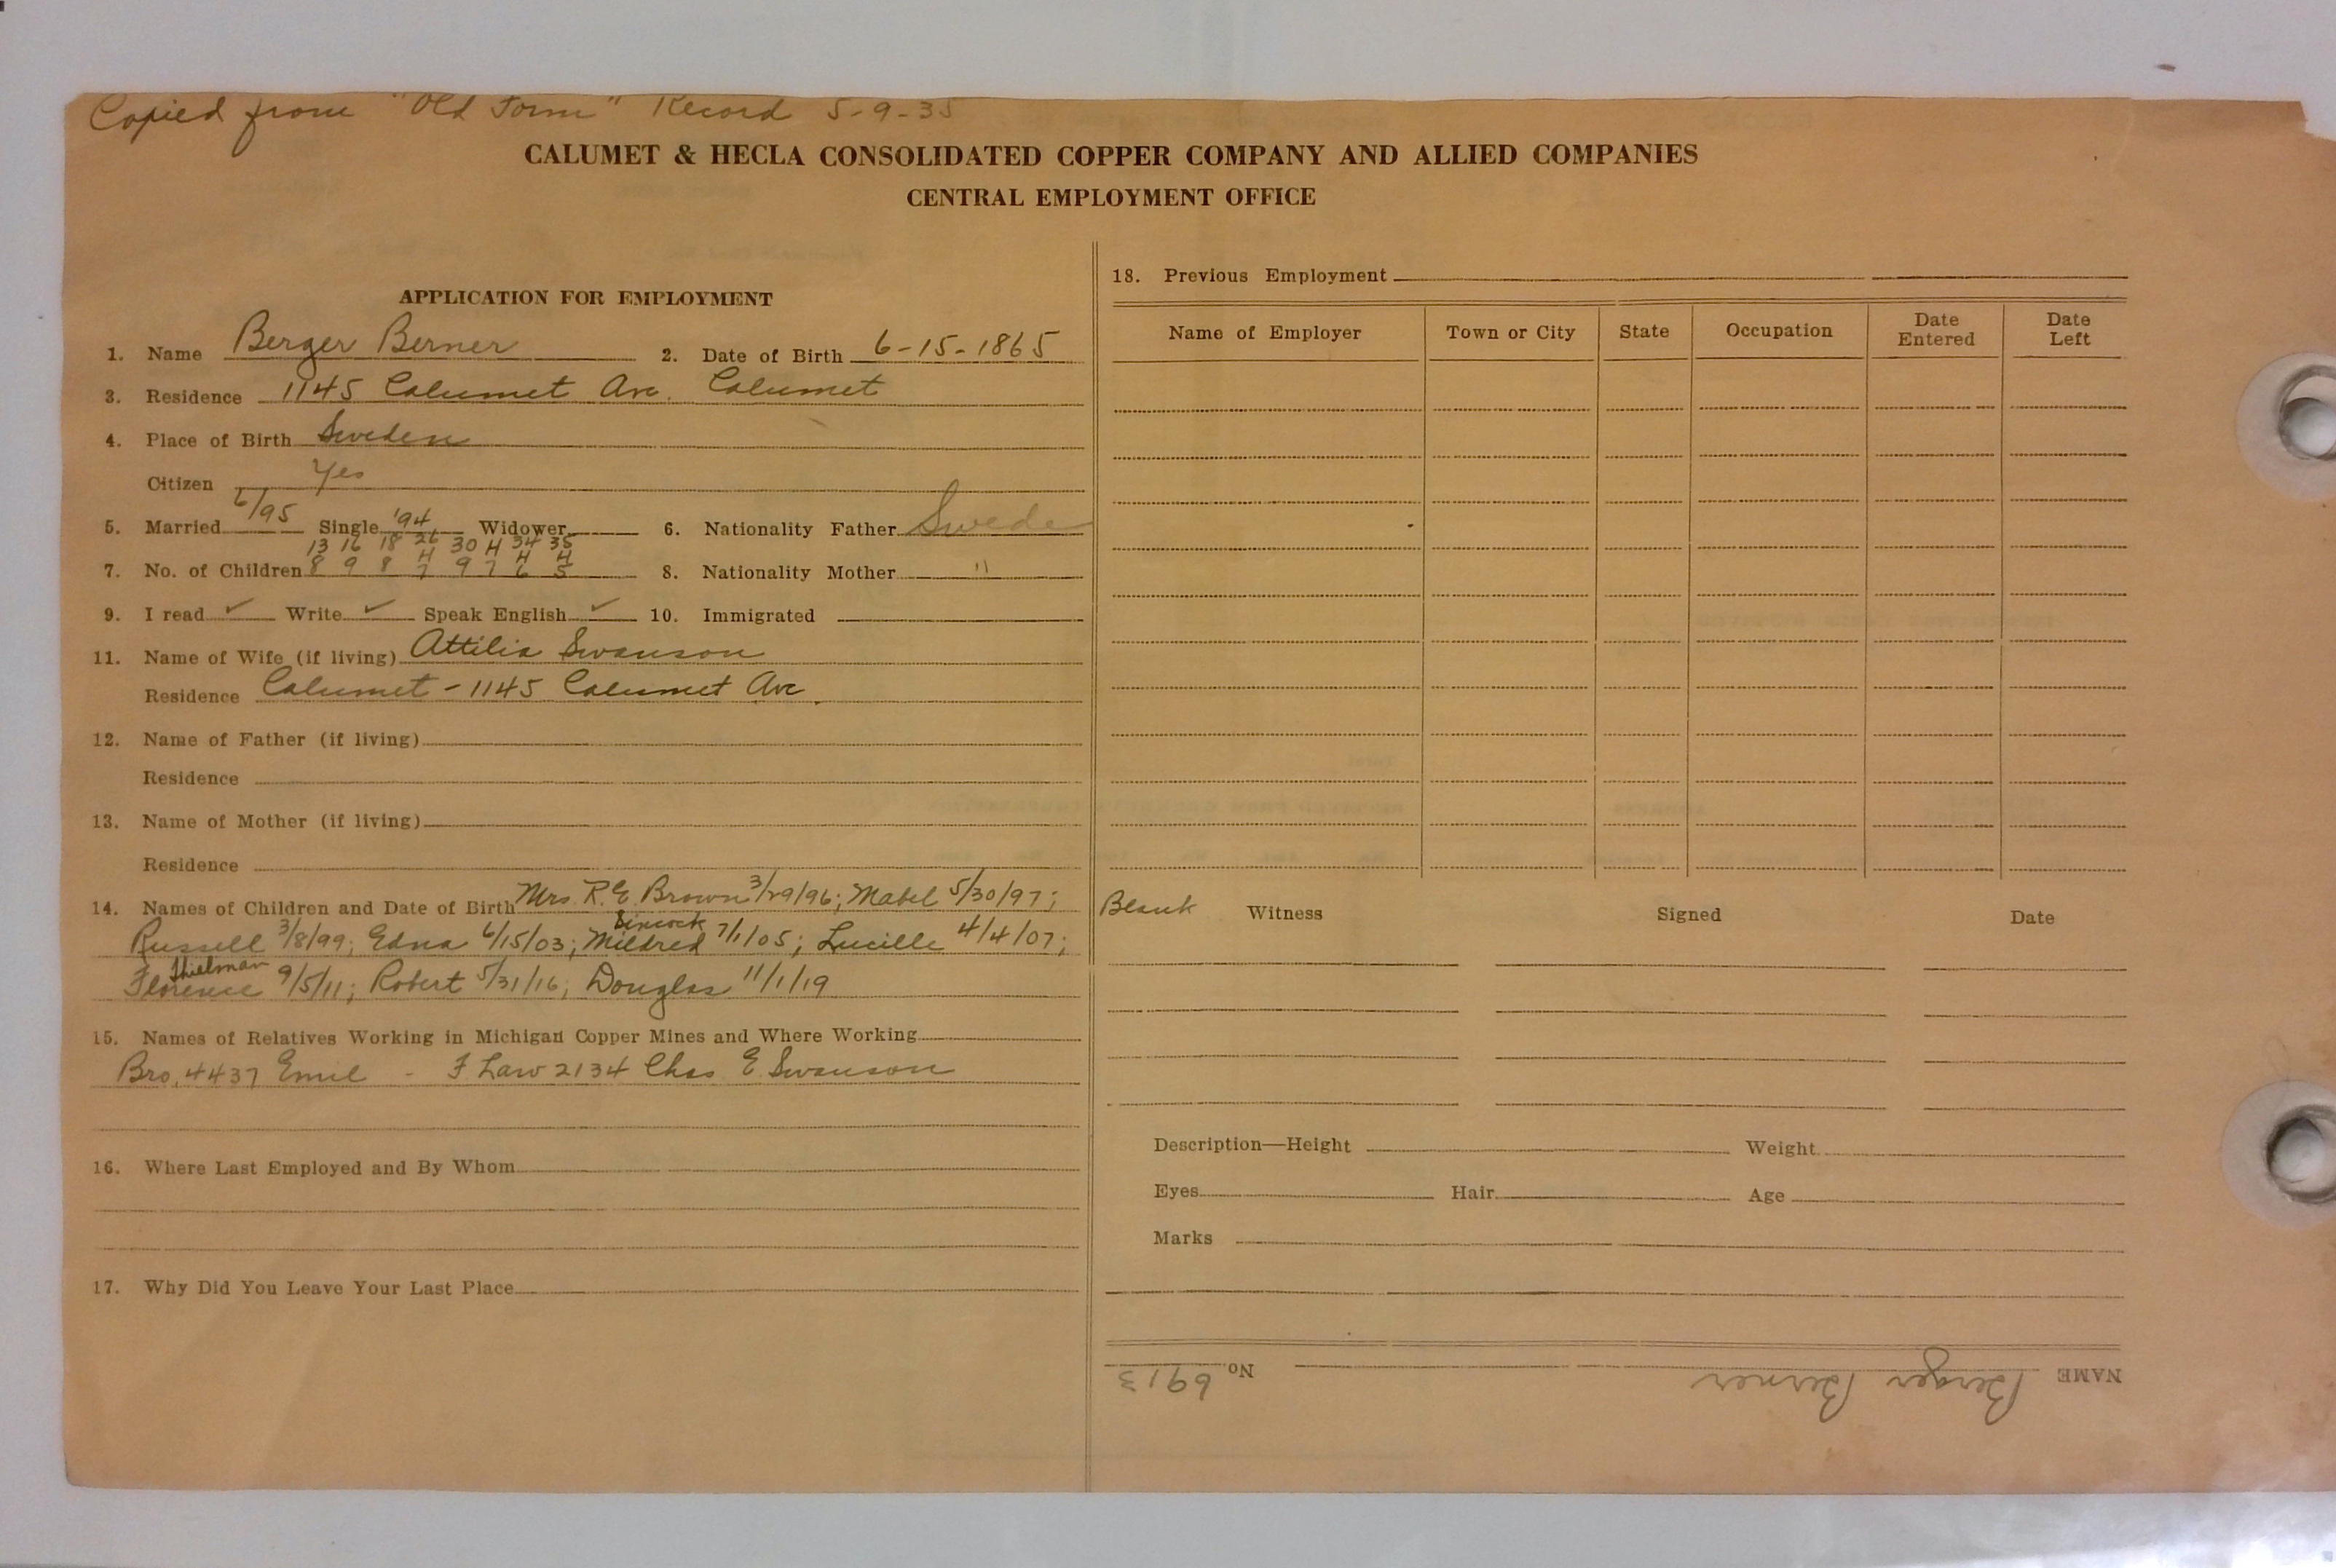 Copied from "Old Form" Record 5-9-35
CALUMET & HECLA CONSOLIDATED COPPER COMPANY AND ALLIED COMPANIES
CENTRAL EMPLOYMENT OFFICE
APPLICATION FOR EMPLOYMENT
1. Name Berger Berner 2. Date of Birth 6-15-1865
3. Residence 1145 Calumet Ave. Calumet
4. Place of Birth Sweden
Citizen Yes
5. Married 6/95 Single '94 Widower 6. Nationality Father Swede
13 16 18 26 30 H 34 35
H H H
7. No. of Children 8 9 8 7 9 7 6 5 8. Nationality Mother "
9. I read ✓ Write ✓ Speak English ✓ 10. Immigrated
11. Name of Wife (if living) Attilia Swanson
Residence Calumet - 1145 Calumet Ave.
12. Name of Father (if living)
Residence
13. Name of Mother (if living)
Residence
14. Names of Children and Date of Birth Mrs. R. E. Brown 3/29/96; Mabel 5/30/97;
Simcock
Russell 3/8/99; Edna 6/15/03; Mildred 7/1/05; Lucille 4/4/07;
Thielman
Florence 9/5/11; Robert 5/31/16; Douglas 11/1/19
15. Names of Relatives Working in Michigan Copper Mines and Where Working
Bro. 4437 Emil - F. Law 2134 Chas. E. Swanson
16. Where Last Employed and By Whom
17. Why Did You Leave Your Last Place
18. Previous Employment
Name of Employer Town or City State Occupation Date Entered Date Left
Blank Witness Signed Date
Description—Height Weight
Eyes Hair Age
Marks
NAME Berger Berner No 6913